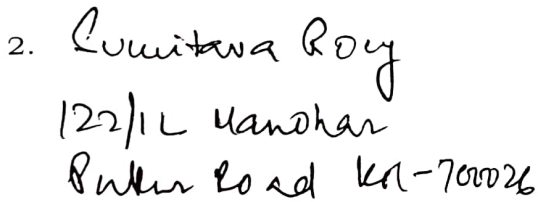 2. Sumitava Roy
122/1L Manohar
Pukur Road Kol-700026